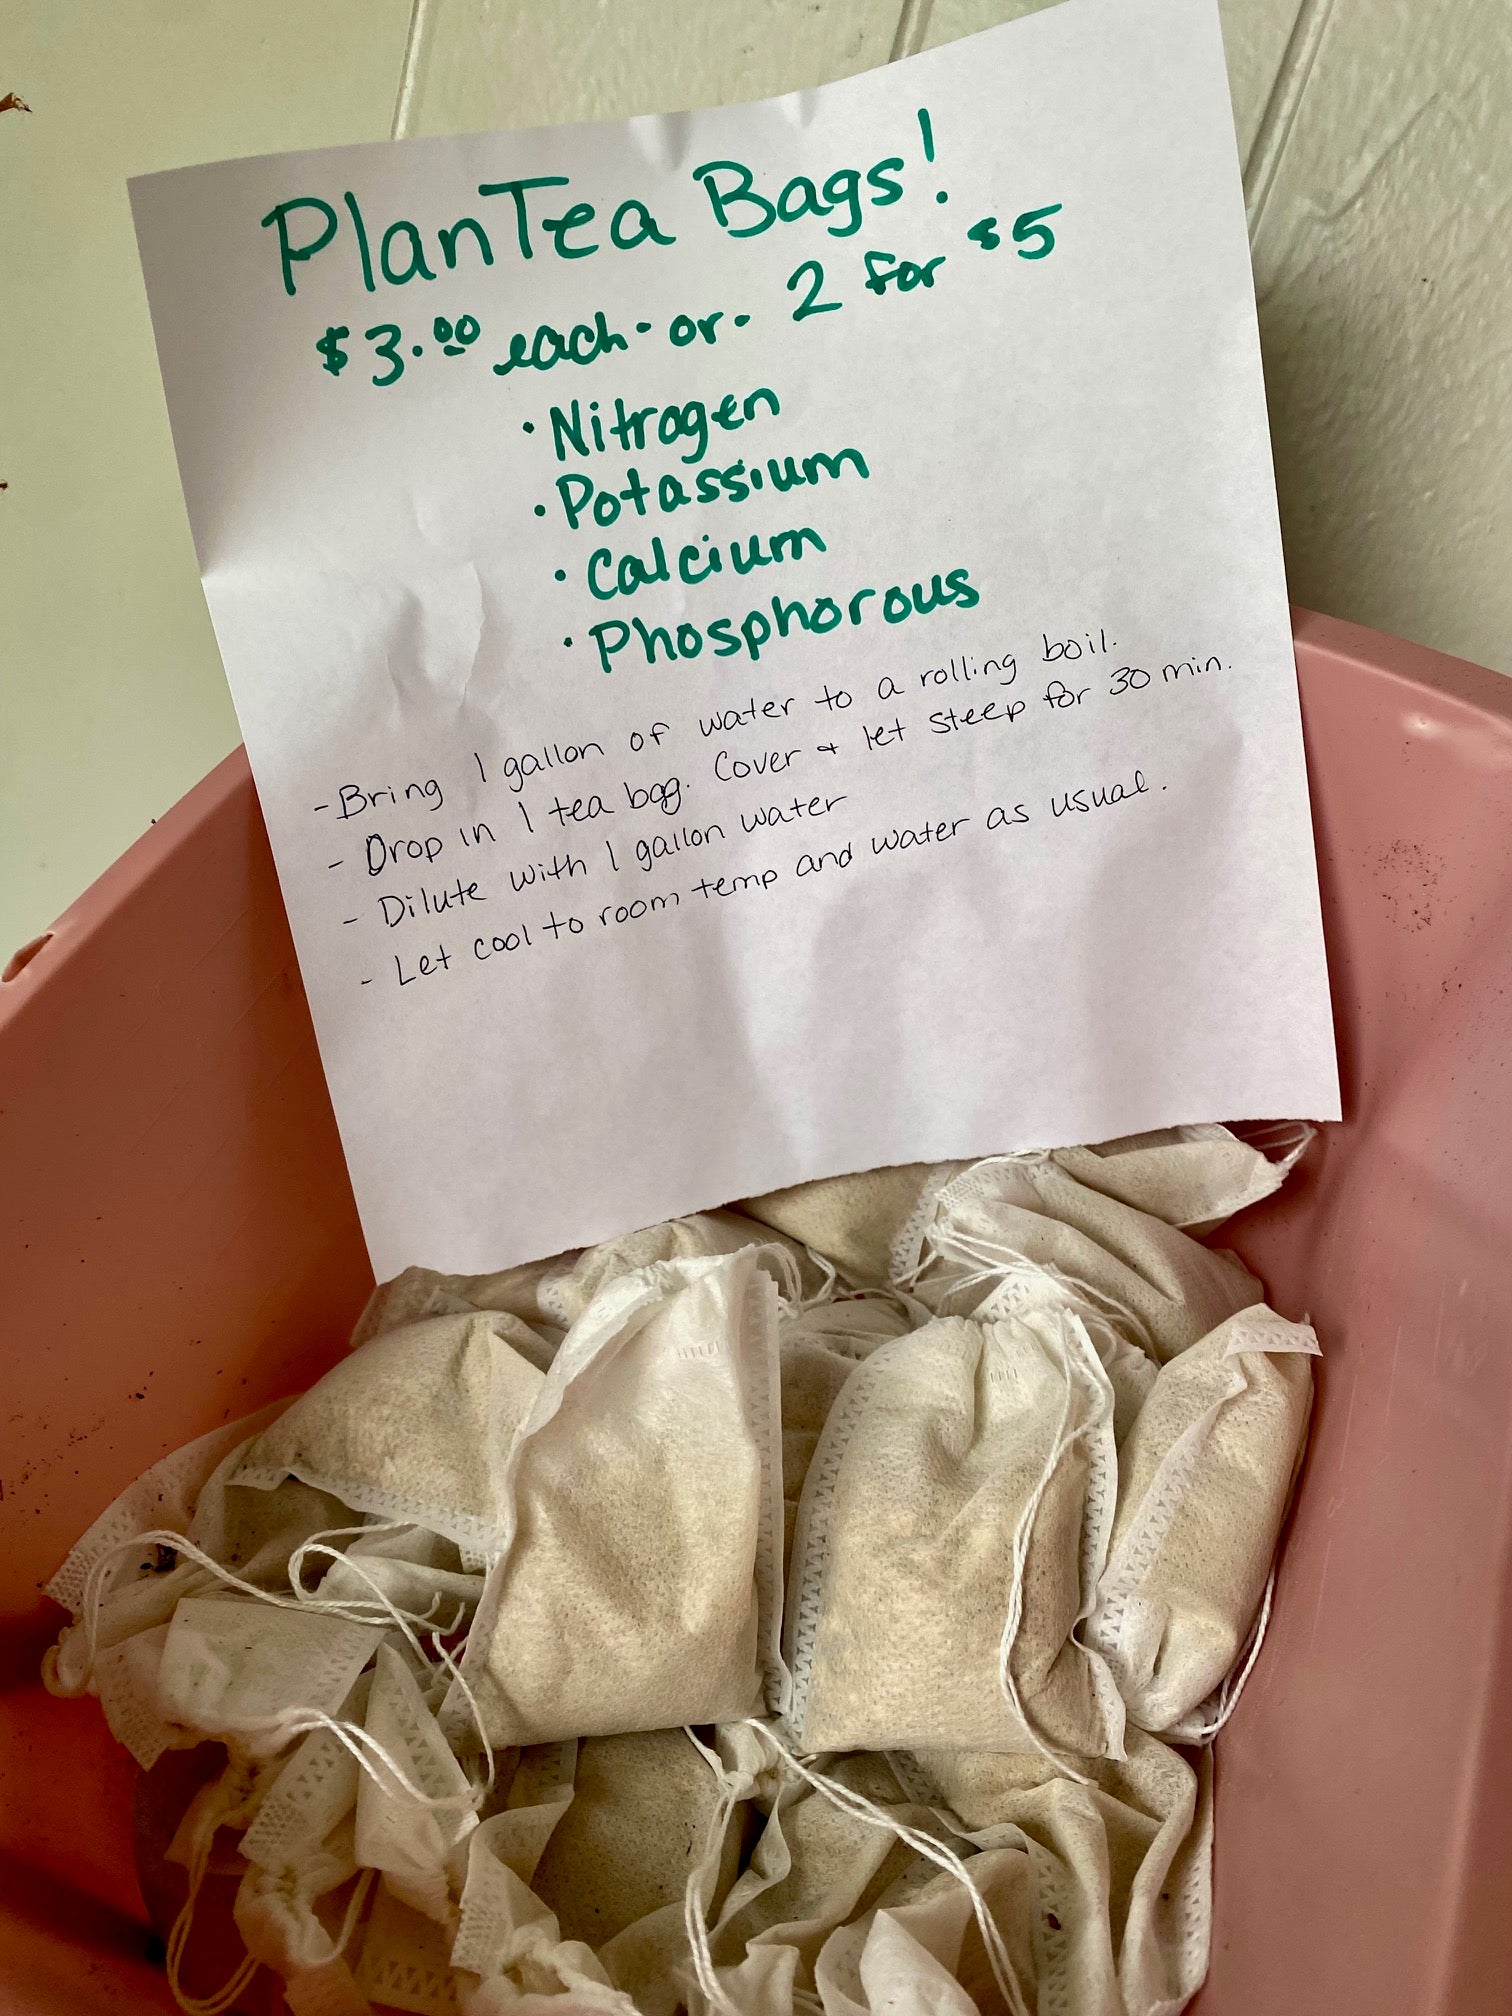 PlanTea Bags!
$3.00 each - or - 2 for $5
· Nitrogen
· Potassium
· Calcium
· Phosphorous
- Bring 1 gallon of water to a rolling boil.
- Drop in 1 tea bag. Cover & let steep for 30 min.
- Dilute with 1 gallon water
- Let cool to room temp and water as usual.